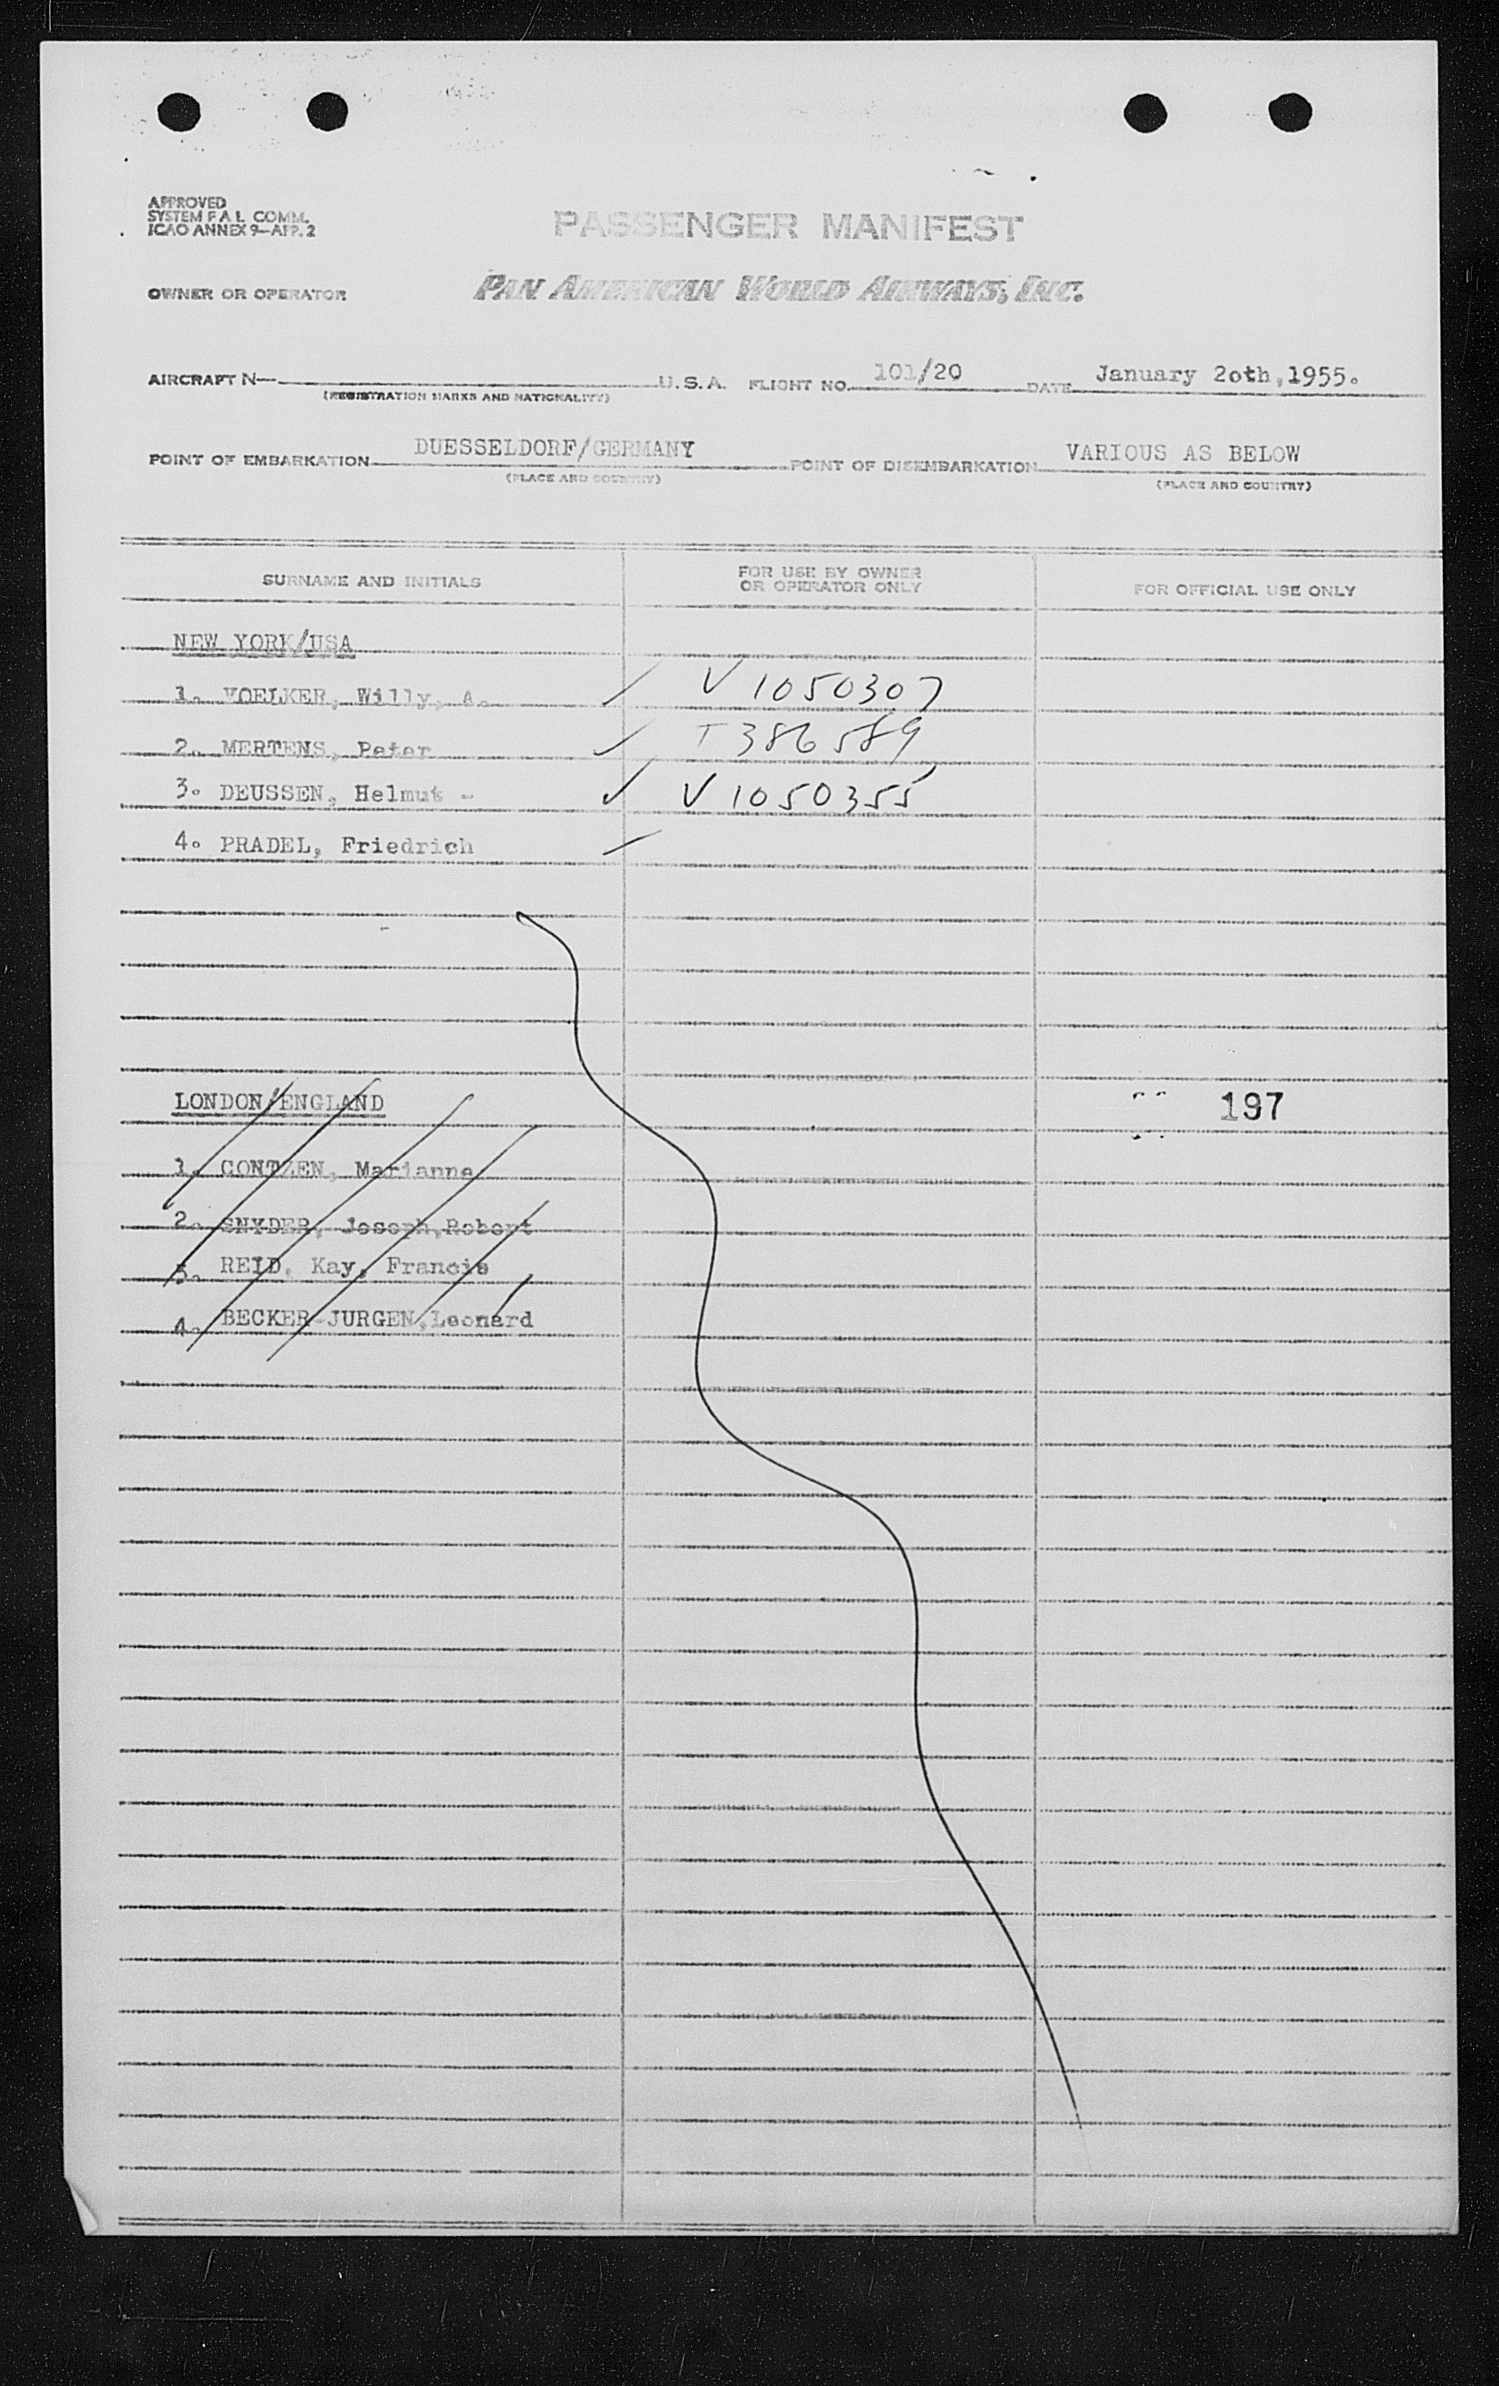 APPROVED
SYSTEM F A L COMM.
ICAO ANNEX 9—APP. 2
PASSENGER MANIFEST
OWNER OR OPERATOR PAN AMERICAN WORLD AIRWAYS, INC.
AIRCRAFT N— U.S.A. FLIGHT NO. 101/20 DATE January 2oth,1955.
(REGISTRATION MARKS AND NATIONALITY)
POINT OF EMBARKATION DUESSELDORF/GERMANY POINT OF DISEMBARKATION VARIOUS AS BELOW
(PLACE AND COUNTRY) (PLACE AND COUNTRY)
SURNAME AND INITIALS FOR USE BY OWNER OR OPERATOR ONLY FOR OFFICIAL USE ONLY
NEW YORK/USA
1. VOELKER, Willy, A. V 1050307
2. MERTENS, Peter T 386589
3. DEUSSEN, Helmut - V 1050355
4. PRADEL, Friedrich
LONDON/ENGLAND 197
1. CONTZEN, Marianne
2. SNYDER, Joseph,Robert
3. REID, Kay, Francis
4. BECKER-JURGEN,Leonard